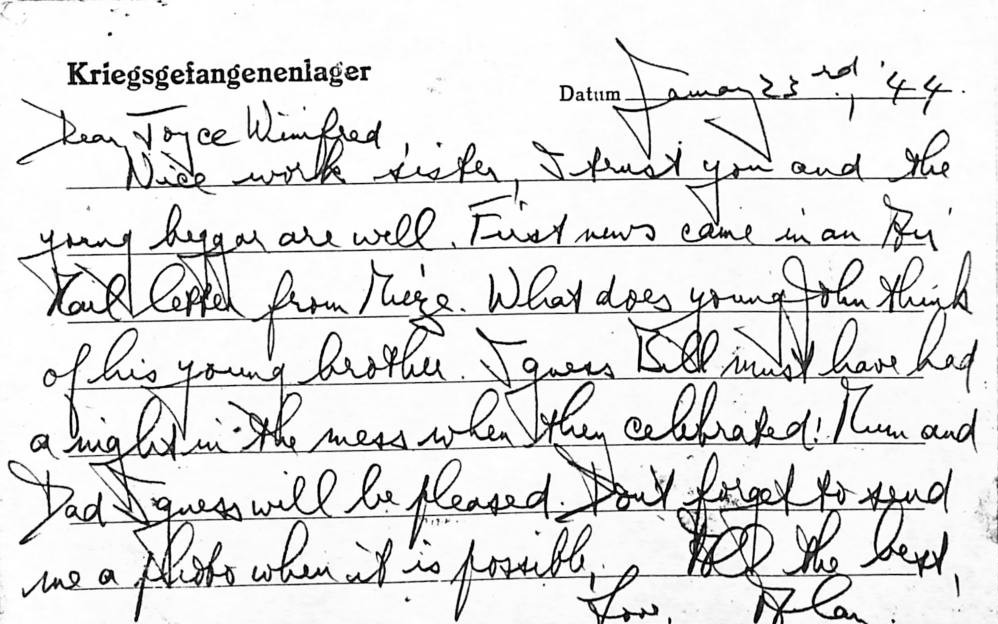 Kriegsgefangenenlager
Datum January 23rd, '44.
Dear Joyce Winifred
Nice work sister, I trust you and the
young beggar are well. First news came in an Air
Mail letter from Mieze. What does young John think
of his young brother. I guess Bill must have had
a night in the mess when they celebrated! Mum and
Dad I guess will be pleased. Don't forget to send
me a photo when it is possible. All the best,
Love, Alan.